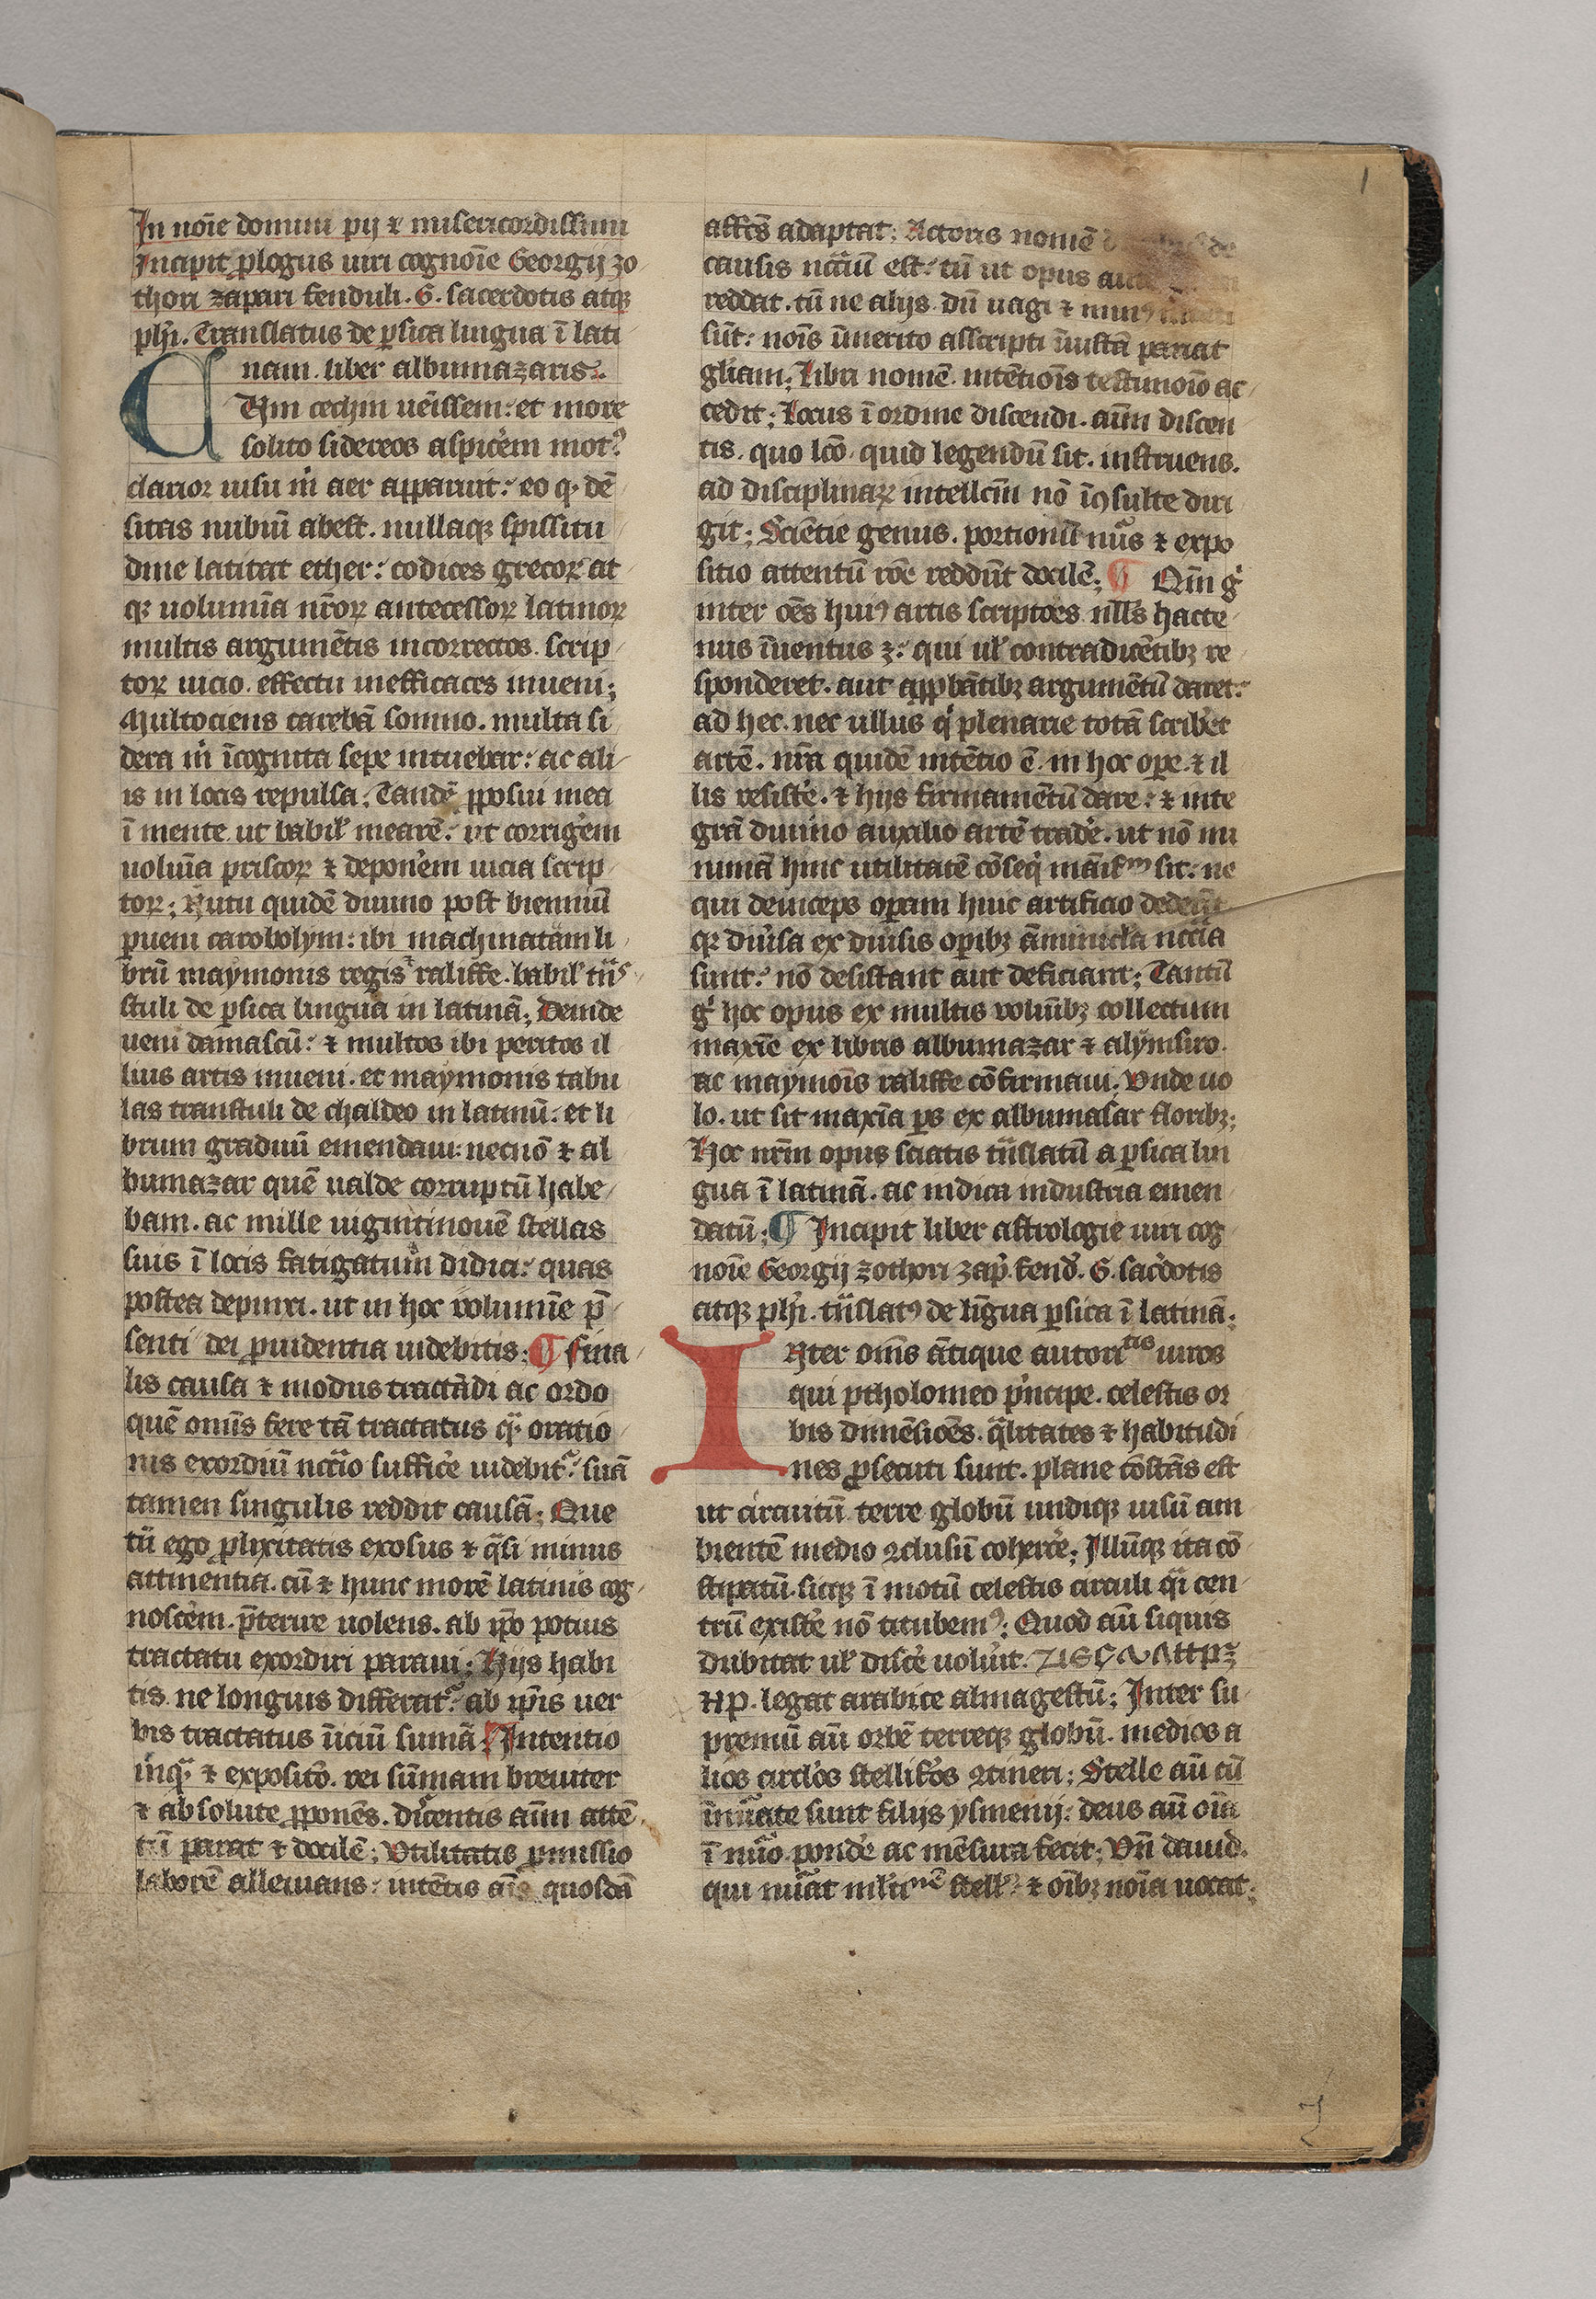 In noīe domini pij ⁊ misericordissimi
Incipit ꝓlogus uiri cognoīe Georgij zo
thori zapari fenduli. G. sacerdotis atqꝫ
pħi. Translatus de ꝑsica lingua ī lati
nam. liber albumazaris.
CUm cechin uēissem. et more
solito sidereos aspicẽm motꝰ
clarior uisu m̊ aer apparuit. eo q̇ dē
sitas nubiū abest. nullaqꝫ spissitu
dine latitat ether. codices grecoꝝ at
qꝫ uolumīa nr̄oꝝ antecessoꝝ latinoꝝ
multis argumētis incorrectos. scrip
toꝝ uicio. effectu inefficaces inueni;
Multociens carebā somno. multa si
dera m̊ īcognita sepe intuebar. ac ali
is in locis repulsa; Tandē ꝓposui mea
ī mente ut babiƚ mearē. ut corrigẽm
uolūia priscoꝝ ⁊ deponẽm uicia scrip
toꝝ; Nutu quidē diuino post bienniū
ꝑueni carobolym. ibi machinatā̃m li
brū maymonis regis raliffe. babiƚ tn̄ᷤ
stuli de ꝑsica lingua in latinā; Deinde
ueni damascū. ⁊ multos ibi peritos il
lius artis inueni. et maymonis tabu
las transtuli de chaldeo in latinū. et li
brum graduū emendaui. necnō ⁊ al
bumazar quē ualde corruptū habe
bam. ac mille uigintinouē stellas
suis ī locis fatigatum̊ didici. quas
postea depinxi. ut in hoc volumīe p̄
senti dei ꝓuidentia uidebitis; ¶ fina
lis causa ⁊ modus tractādi ac ordo
quē omīs fere tā tractatus qᷓ oratio
nis exordiū nc̄cᷓio sufficẽ uidebitᷓ. suā
tamen singulis reddit causā; Que
tū ego ꝓlixitatis exosus ⁊ qᷓsi minus
attinentia. cū ⁊ hunc morē latinis cog
noscẽm. p̄terire uolens. ab ip̄o potius
tractatu exordiri paraui; Hijs habi
tis. ne longius differatᷓ. ab ip̄is uer
bis tractatus īiciū sumā ¶ Intentio
inqᷓ. ⁊ expositō. rei sūmam breuiter
⁊ absolute ꝓponēs. dic̄entis aīm attē
tū parat ⁊ docilē; Vtilitatis ꝓmissio
laborē alleuians. intētis quosdā
affc̄s adaptat; Actoris nomē de
causis nc̄cᷓiū est. tū ut opus
reddat. tū ne alijs. dū uagi ⁊
sūt. noīs īmerito asscripti īiustā pariat
glīam; Libri nomē. intētiōis testimoīo ac
cedit; Locus ī ordine discendi. aīm discen
tis. quo lcō. quid legendū sit. instruens.
ad disciplinaꝝ intellcīm nō īꝯsulte diri
git; Sciētie genus. portionū nūᷓs ⁊ expo
sitio attentū rōe reddūt docilē; ¶ Qm̄ gͥ
inter oēs huiꝰ artis scriptōes nlls̄ hacte
nus īuentus ꝫ. qui ul̄ contradicētibꝫ re
sponderet. aut apꝓbātibꝫ argumētū daret.
ad hec. nec ullus qͥ plenarie totā scribẽt
artē. nr̄a quidē intētio ē. in hoc oꝑe. ⁊ il
lis resistẽ. ⁊ hijs firmamētū dare. ⁊ inte
grā diuino auxilio artē tradẽ. ut nō mi
nimā hinc utilitatē cōseqͥ sit. ne
qui deinceps oꝑam huic artificio dedeīt
qꝫ diūsa ex diūsis opibꝫ āminicła nc̄cīa
sunt. nō desistant aut deficiant; Tantū
gͥ hoc opus ex multis volūibꝫ collectum
maxīe ex libris albumazar ⁊ alymsiro.
ac maymoīs raliffe cōfirmaui; Vnde uo
lo. ut sit maxīa ꝑs ex albumasar floribꝫ;
Hoc nr̄m opus sciatis tn̄slatū a ꝑsica lin
gua ī latinā. ac indica industria emen
datū; ¶ Incipit liber astrologie uiri cog
noīe Georgij zothori zap̄. fend̄. G. sac̄dotis
atqꝫ pħi. tn̄slatꝰ de līgua ꝑsica ī latinā;
INter omīs ātique autoriᵗⁱˢ uiros
qui ptholomeo pͥncipe. celestis or
bis dimēsiōes. qᷓlitates ⁊ habitudi
nes ꝓsecuti sunt. plane cōstās est
ut circuitū terre globū undiqꝫ uisū am
bientē medio ꝯclusū cohercẽ; Illūqꝫ ita cō
stipatū. sicqꝫ ī motū celestis circuli qᷓi cen
trū existẽ nō titubemꝰ; Quod aū siquis
dubitat ul̄ discẽ uolũit.
legat arabice almagestū; Inter su
premū aū orbē terreqꝫ globū. medios a
lios circłos stellifẽos ꝯtineri; Stelle aū cū
īnūᷓate sunt filijs ysmenij. deus aū oīa
ī nūᷓo. pondẽ ac mēsura fecit; Vn̄ dauid.
qui nūᷓat mƚtiⁿᵉ̄ stellꝝ ⁊ oībꝫ noīa uocat;
1